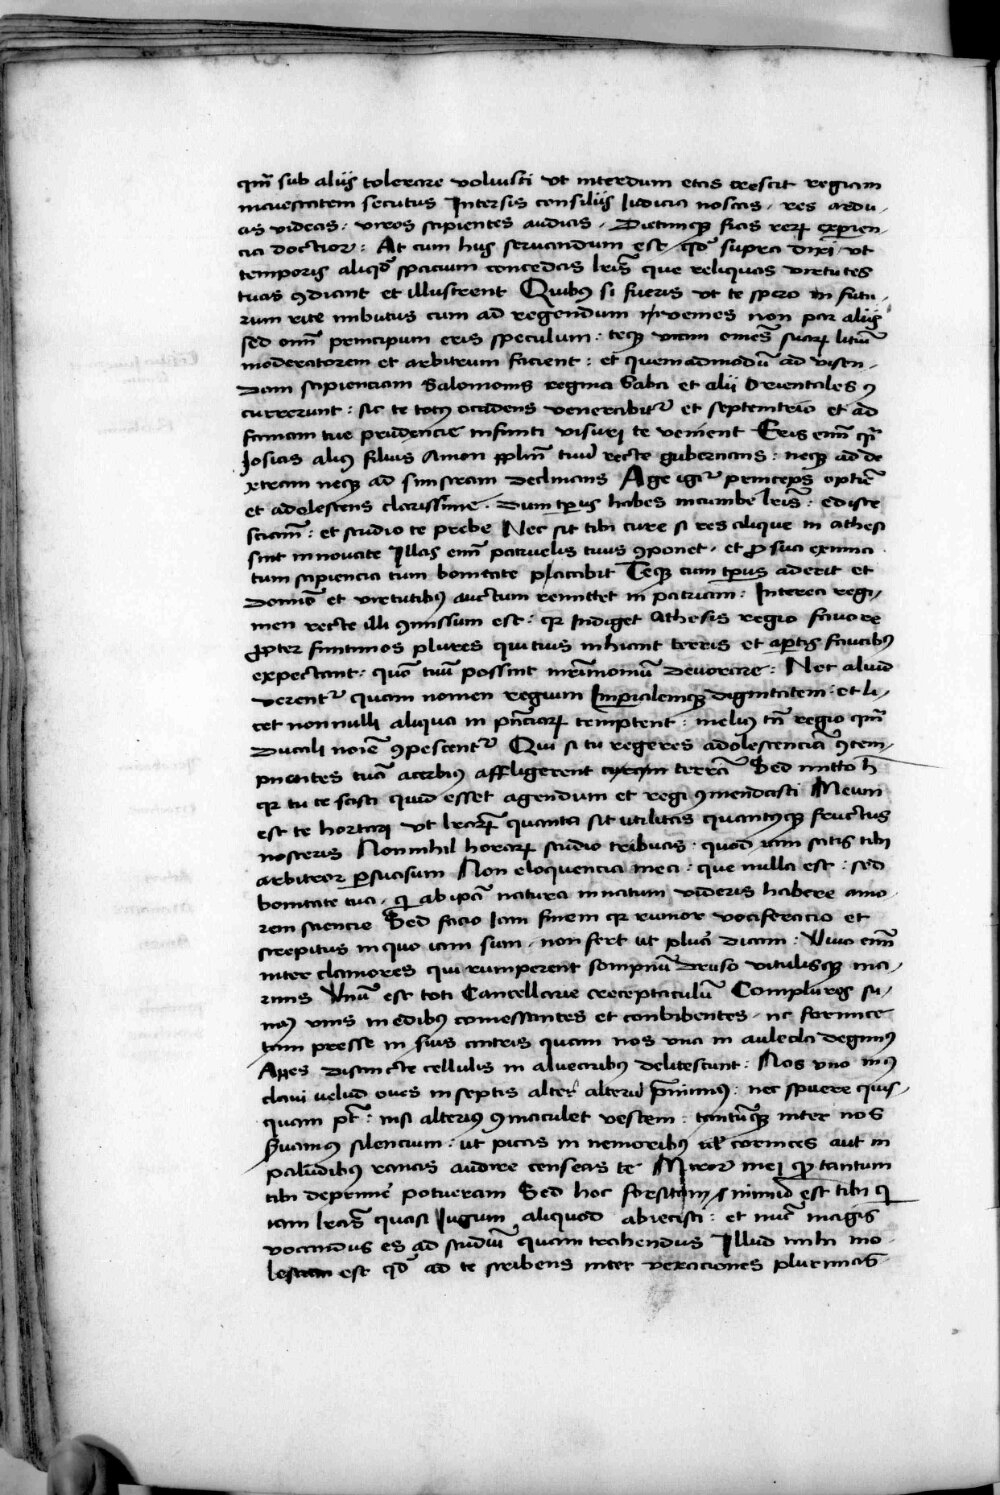 qm̄ sub aliis tolerare voluisti vt interdum etas crescit regiam
maiestatem secutus Intersis consiliis Iudicia noscas . res ardu
as videas . viros sapientes audias . Dietimq3 fias rerꝝ experien
cia doctior : At cum hijs seruandum est qd̄ supra dixi vt
temporis aliqd̄ spacium concedas lr̄is que reliquas virtutes
tuas ꝯdiant et illustrent Quibꝰ si fueris vt te spero in futu
rum rite imbutus cum ad regendum inuenies non par aliis
sed om̄ principum eris speculum : teq3 vicini om̄es suaꝝ litiū
moderatorem et arbitrum facient : et quemadmodū ad visen
dam sapienciam Salomonis regina Saba et alii Orientales ꝯ
currerunt : sic te totꝰ occidens venerabitur et septemtrio et ad
famam tue prudencie infiniti visuri te venient Eris enī qsi
Iosias aliꝰ filius Amon ppl̄m tuū recte gubernans : neq3 ad de
xtram neq3 ad sinistram declinans Age igr̄ princeps optīe
et adolescens clarissime . Dum tp̄us habes incumbe lr̄is : edisce
sciam̄ : et studio te prebe Nec sit tibi cure si res alique in athesi
sint in nouitate Illas enī patruelis tuus ꝯponet . et ꝓ sua eximia
tum sapiencia tum bonitate placabit Teq3 cum tp̄us aderit et
donis et virtutibꝰ auctum remittet in patriam : Interea regi
men recte illi ꝯmissum est : qr Indiget Athesis regio fauore
ꝓpter finitimos plures qui tuis inhiant terris et aꝑtis faucibꝰ
expectant : quo tuū possint mr̄imoniū deuorare : Nec aliud
verentr̄ quam nomen regium Imꝑialemq3 dignitatem . et li
cet nonnulli aliqua in pn̄ciaꝝ temptent : meliꝰ tn̄ regio qm̄
Ducali noīe ꝯpescentr̄ Qui si tu regeres adolescenciā ꝯtem
pnentes tuā acerbiꝰ affligerent terrā Sed mitto h
qr tu te scisti quid esset agendum et regi ꝯmendasti Meum
est te hortari vt lr̄aꝝ quanta sit vtilitas quantusq3 fructus
nosceris Nonnihil horarꝝ studio tribuas . quod iam satis tibi
arbitror ꝑsuasum Non eloquencia mea . que nulla est : sed
bonitate tua . qi ab ipā natura innatum videris habere amo
rem sciencie Sed facio Iam finem qr rumor vociferacio et
strepitus in quo iam sum . non fert vt plura dicam : Viuo enī
inter clamores qui rumperent sompnū Druso vitulisq3 ma
rinis Vnū est toti Cancellarie receptaculū Complures su
mꝰ vnis in edibus comessantes et conbibentes . nc formice
tam presse in suis antris quam nos vna in auleola degimꝰ
Apes distincte cellulis in aluearibus delitescunt : Nos vno mꝰ
claui velud oues in septis alter alteri p̄minimꝰ : nec spuere quis
quam pt̄ . nisi alterius ꝯmaculet vestem : tantūq3 inter nos
seruamꝰ silencium : vt picas in nemoribꝰ vel cornices aut in
paludibus ranas audire censeas te Miror mei qd tantum
tibi deprimē potueram Sed hoc forsitam nimiū est tibi qi
iam lr̄as quasi Iugum aliquod abiecisti : et nūc magis
vocandus es ad studiū quam trahendus Illud mihi mo
lestum est qd̄ ad te scribens inter vexaciones plurimas